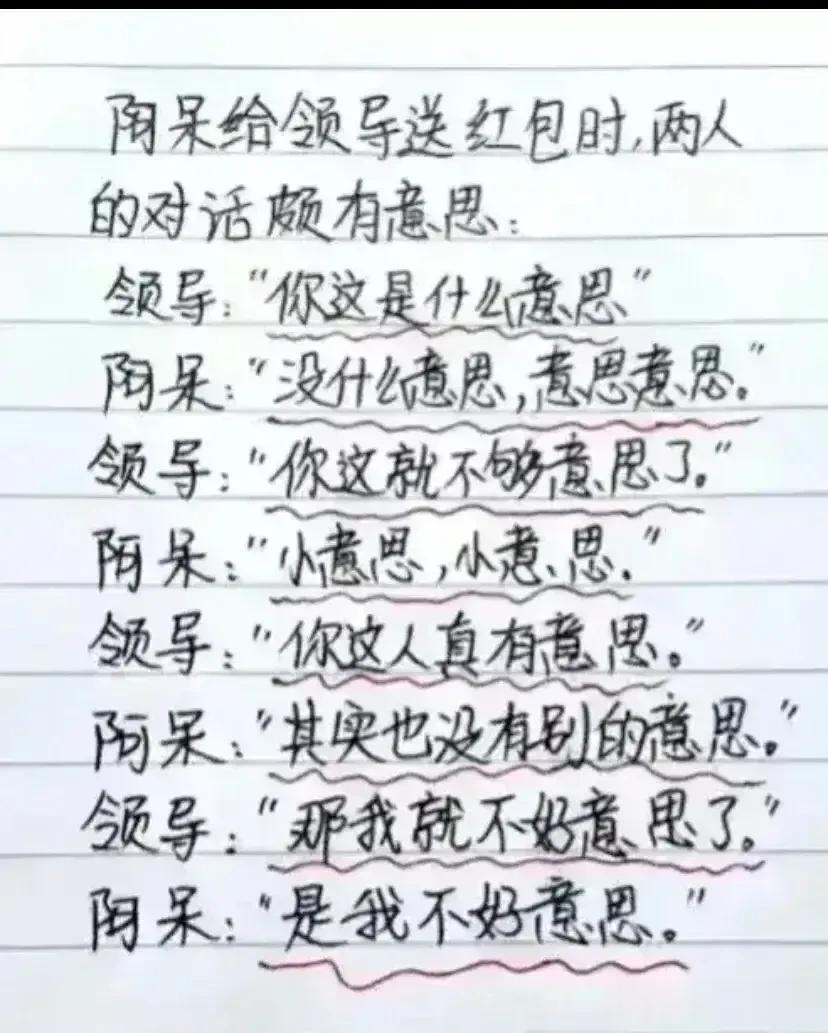 阿呆给领导送红包时,两人
的对话颇有意思:
领导:“你这是什么意思”
阿呆:“没什么意思,意思意思.”
领导:“你这就不够意思了.”
阿呆:“小意思,小意思.”
领导:“你这人真有意思。”
阿呆:“其实也没有别的意思。”
领导:“那我就不好意思了.”
阿呆:“是我不好意思。”